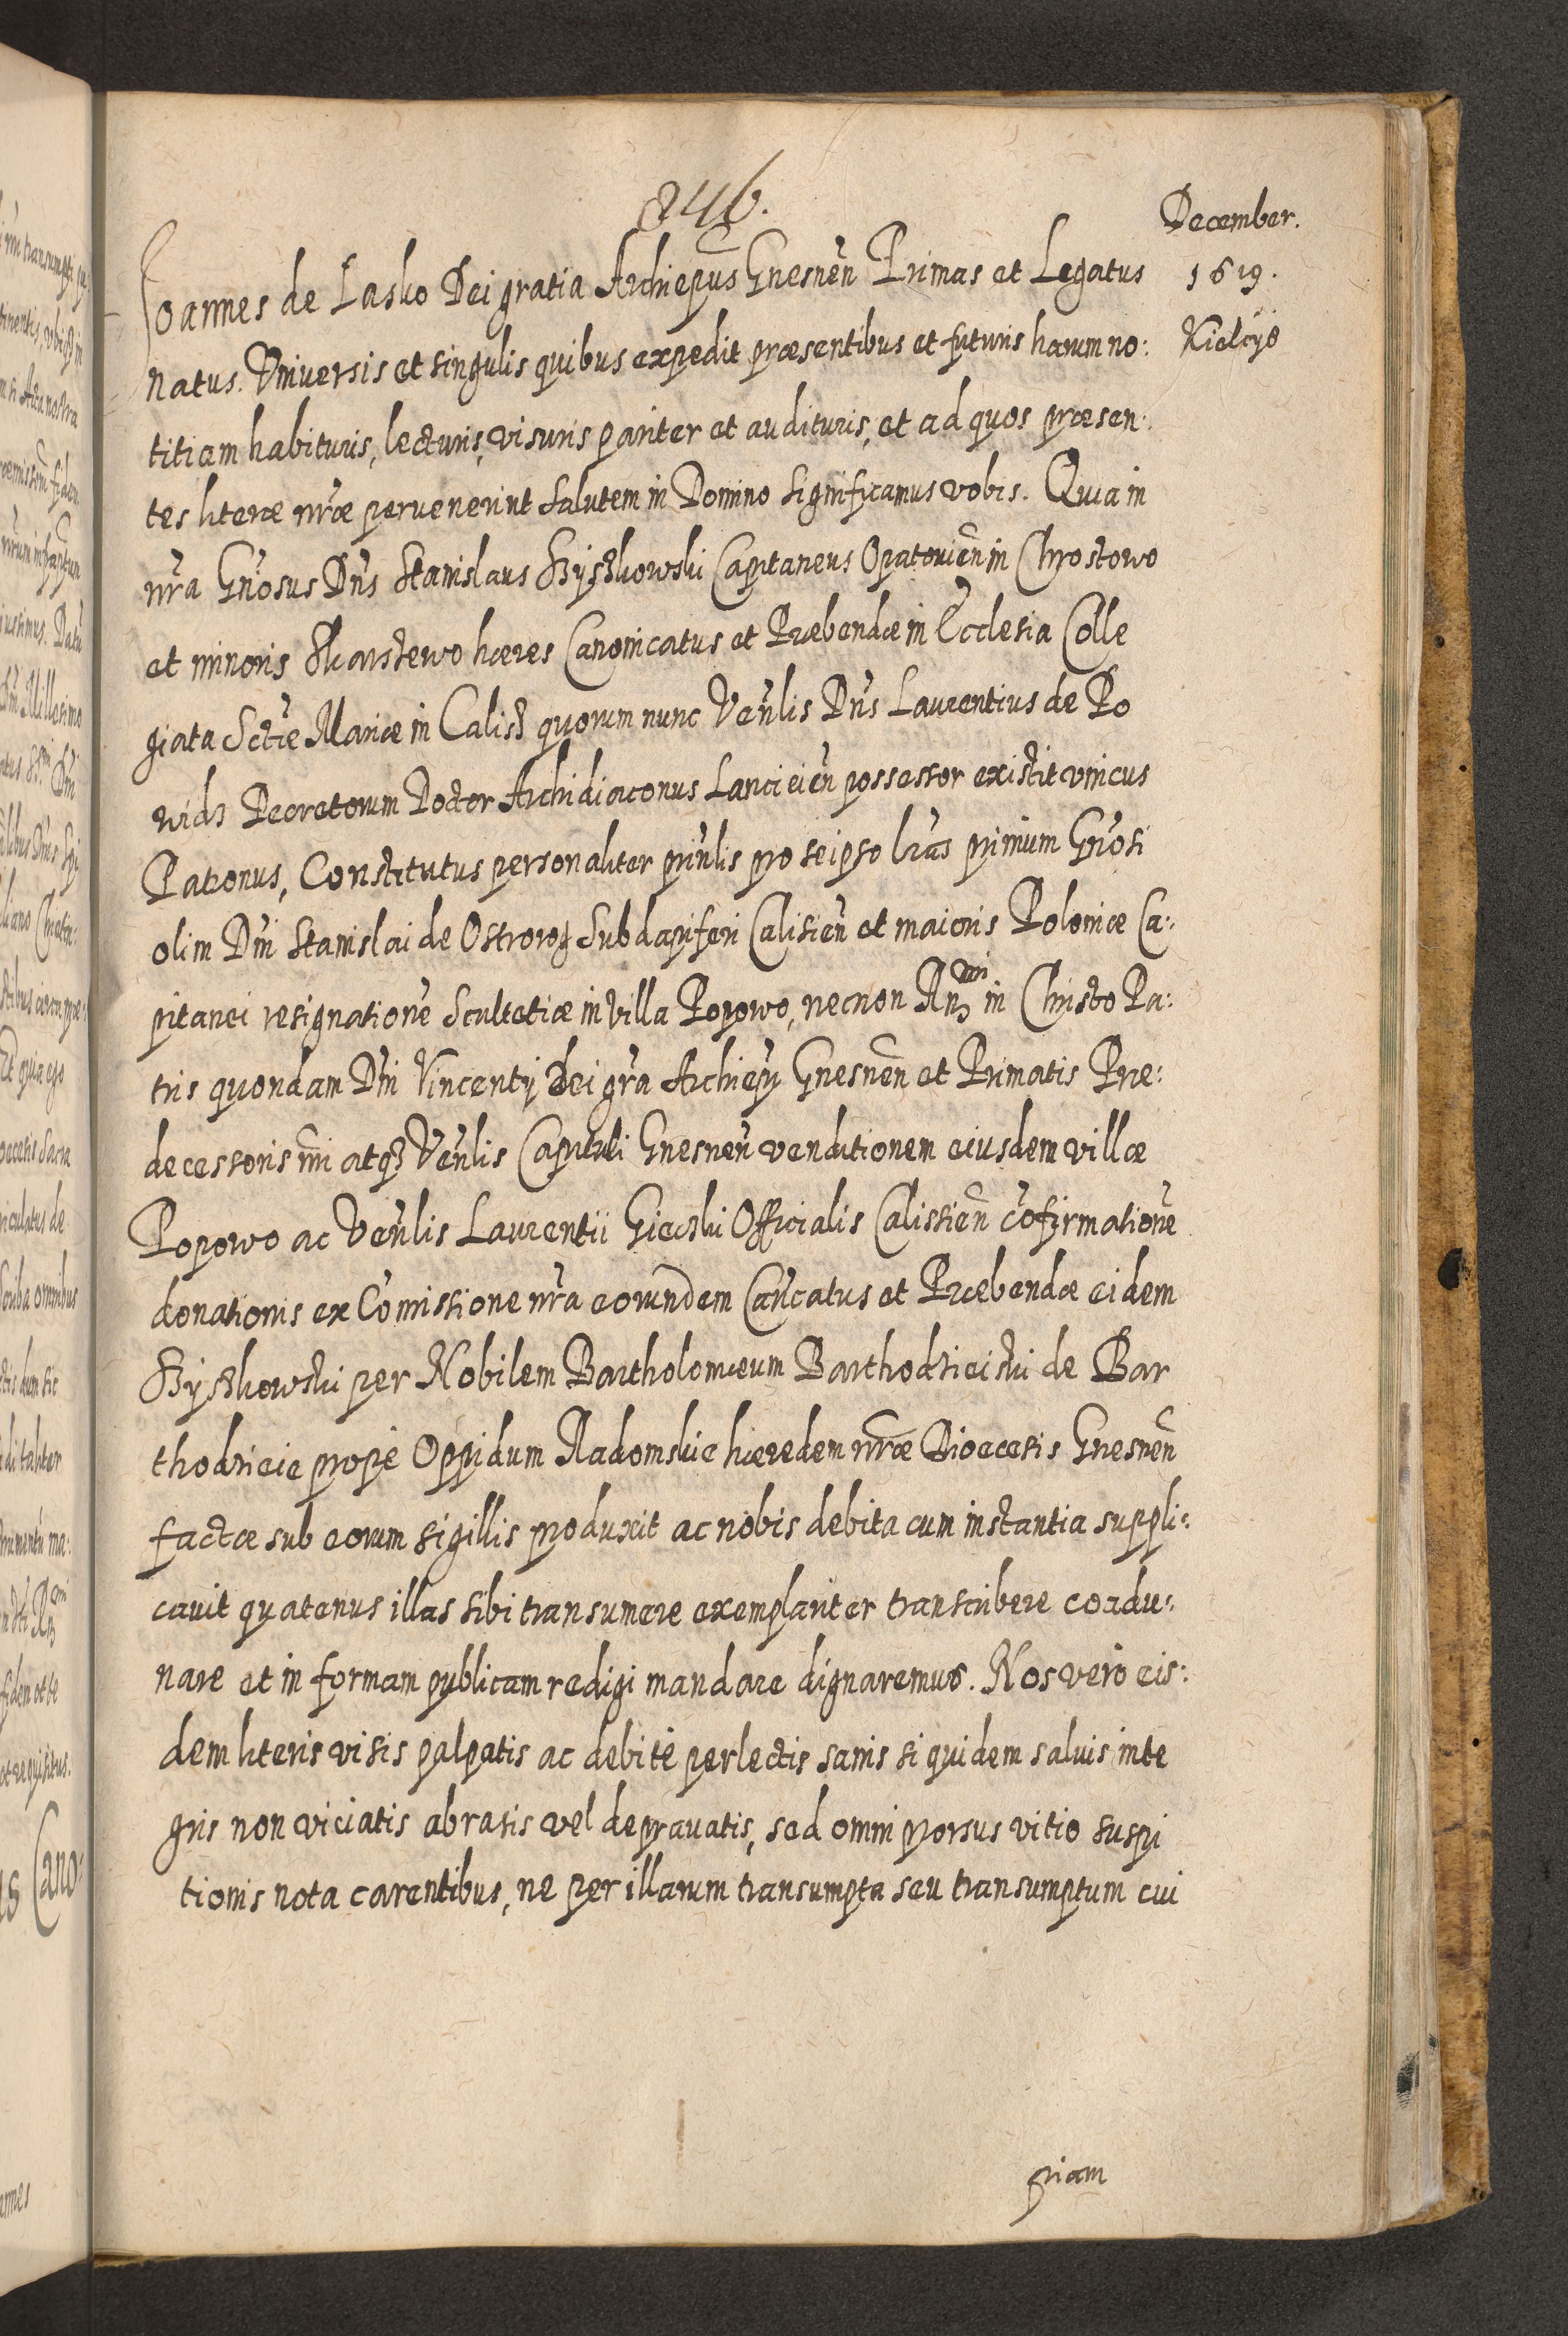 246.
December.
1619.
Kielcys
Joannes de Lasko Dei gratia Archiepũs Gnesnẽn Primas et Legatus
natus. Vniuersis et singulis quibus expedit præsentibus et futuris harum no:
titiam habituris, lecturis, visuris pariter et audituris, et ad quos præsen:
tes literæ nr̃æ peruenerint Salutem in Domino significamus vobis. Quia in
nr̃a Gñosus Dñs Stanislaus Szyszkowski Capitaneus Opatouiẽn in Chrostowo
et minoris Skarszewo hæres Canonicatus et Præbendæ in Ecclesia Colle
giata Sctæ̃ Mariæ in Calisz quorum nunc Veñlis Dñs Laurentius de Ro
Decretorum Doctor Archidiaconus Lancicieñ possessor existit vnicus
Patronus, Constitutus personaliter pr̃ñlis pro se ipso lr̃as primum Gñosi
olim Dñi Stanislai de Ostrorog Subdapiferi Calisieñ et maioris Poloniæ Ca:
pitanei resignationẽ Scultetiæ in villa Popowo, necnon Rñ in Christo Pa:
tris quondam Dñi Vincentij Dei gr̃a Archiepi Gnesnẽn et Primatis Præ:
decessoris nr̃i atqꝫ Veñlis Capituli Gnesneñ venditionem eiusdem villæ
Popowo ac Veñlis Laurentii Officialis Calissiẽn cõfirmationẽ
donationis ex Cõmissione nr̃a eorundem Cañcatus et Præbendæ eidem
Szyszkowski per Nobilem Bartholomæum Barthodzieiski de Bar
thodzieie propè Oppidum Radomskie hæredem nr̃æ Diœcesis Gnesnẽn
factæ sub eorum sigillis produxit ac nobis debita cum instantia suppli:
cauit quatenus illas sibi transumere exemplariter transcribere coadu:
nare et in formam publicam redigi mandare dignaremur. Nos verò eis:
dem literis visis palpatis ac debitè perlectis sanis siquidem saluis inte
gris non viciatis abrasis vel deprauatis, sed omni prorsus vitio suspi
tionis nota carentibus, ne per illarum transumpta seu transumptum cui
piam